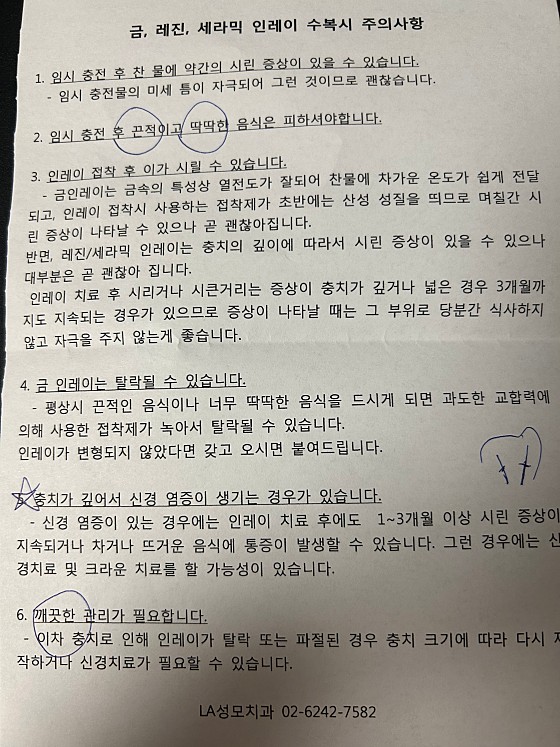 금, 레진, 세라믹 인레이 수복시 주의사항
1. 임시 충전 후 찬 물에 약간의 시린 증상이 있을 수 있습니다.
- 임시 충전물의 미세 틈이 자극되어 그런 것이므로 괜찮습니다.
2. 임시 충전 후 끈적이고 딱딱한 음식은 피하셔야합니다.
3. 인레이 접착 후 이가 시릴 수 있습니다.
- 금인레이는 금속의 특성상 열전도가 잘되어 찬물에 차가운 온도가 쉽게 전달
되고, 인레이 접착시 사용하는 접착제가 초반에는 산성 성질을 띄므로 며칠간 시
린 증상이 나타날 수 있으나 곧 괜찮아집니다.
반면, 레진/세라믹 인레이는 충치의 깊이에 따라서 시린 증상이 있을 수 있으나
대부분은 곧 괜찮아 집니다.
인레이 치료 후 시리거나 시큰거리는 증상이 충치가 깊거나 넓은 경우 3개월까
지도 지속되는 경우가 있으므로 증상이 나타날 때는 그 부위로 당분간 식사하지
않고 자극을 주지 않는게 좋습니다.
4. 금 인레이는 탈락될 수 있습니다.
- 평상시 끈적인 음식이나 너무 딱딱한 음식을 드시게 되면 과도한 교합력에
의해 사용한 접착제가 녹아서 탈락될 수 있습니다.
인레이가 변형되지 않았다면 갖고 오시면 붙여드립니다.
5. 충치가 깊어서 신경 염증이 생기는 경우가 있습니다.
- 신경 염증이 있는 경우에는 인레이 치료 후에도 1~3개월 이상 시린 증상이
지속되거나 차거나 뜨거운 음식에 통증이 발생할 수 있습니다. 그런 경우에는 신
경치료 및 크라운 치료를 할 가능성이 있습니다.
6. 깨끗한 관리가 필요합니다.
- 이차 충치로 인해 인레이가 탈락 또는 파절된 경우 충치 크기에 따라 다시
작하거나 신경치료가 필요할 수 있습니다.
LA성모치과 02-6242-7582